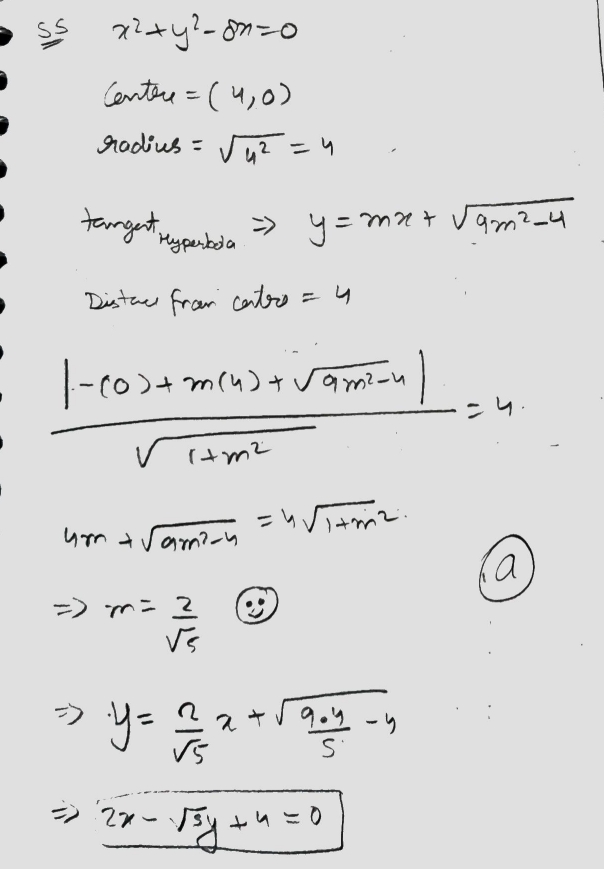 55 x²+y²-8x=0
Centre = (4,0)
radius = √4² = 4
tangent Hyperbola ⇒ y = mx + √9m²-4
Distace from centre = 4
|-(0) + m(4) + √9m²-4| / √1+m² = 4.
4m + √9m²-4 = 4√1+m².
a
⇒ m = 2/√5
⇒ y = 2/√5 x + √9.4/5 - 4
⇒ 2x - √5y + 4 = 0